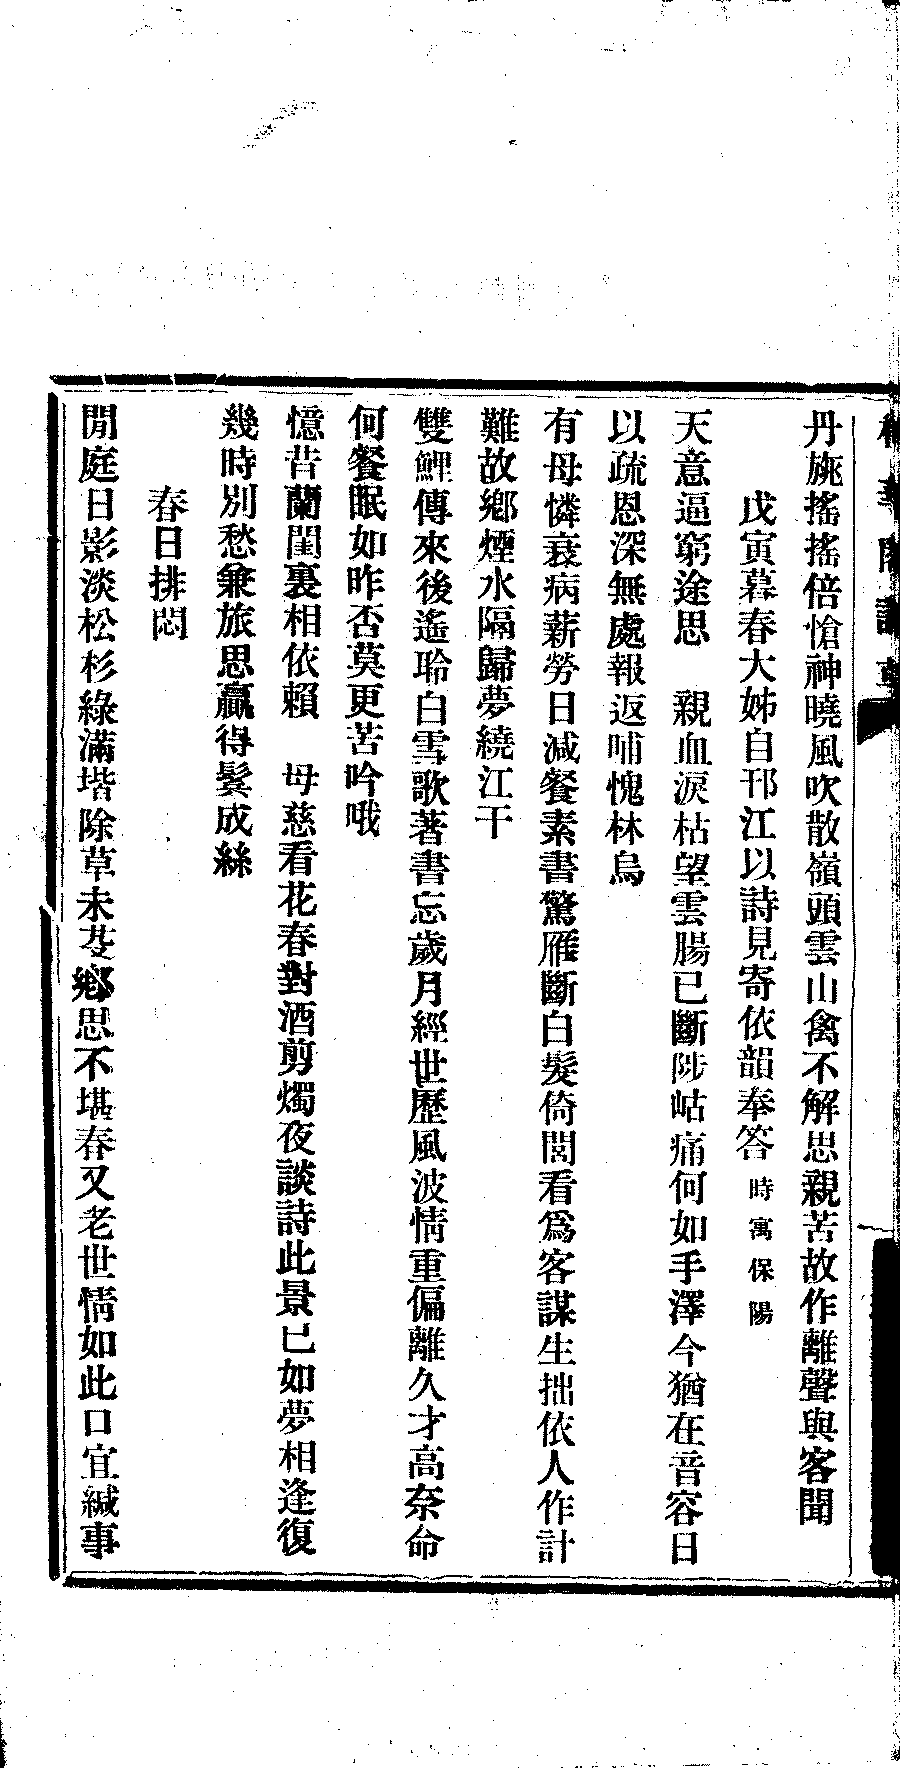 丹旐搖搖倍愴神曉風吹散嶺頭雲山禽不解思親苦故作離聲與客聞
戊寅暮春大姊自邗江以詩見寄依韻奉答時寓保陽
天意逼窮途思　親血淚枯望雲腸已斷陟岵痛何如手澤今猶在音容日
以疏恩深無處報返哺愧林烏
有母憐衰病薪勞日減餐素書驚雁斷白髮倚閭看爲客謀生拙依人作計
難故鄉煙水隔歸夢繞江干
雙鯉傳來後遙聆白雪歌著書忘歲月經世歷風波情重偏離久才高奈命
何餐眠如昨否莫更苦吟哦
憶昔蘭閨裏相依賴　母慈看花春對酒剪燭夜談詩此景已如夢相逢復
幾時別愁兼旅思贏得鬢成絲
春日排悶
閒庭日影淡松杉綠滿堦除草未芟鄉思不堪春又老世情如此口宜緘事